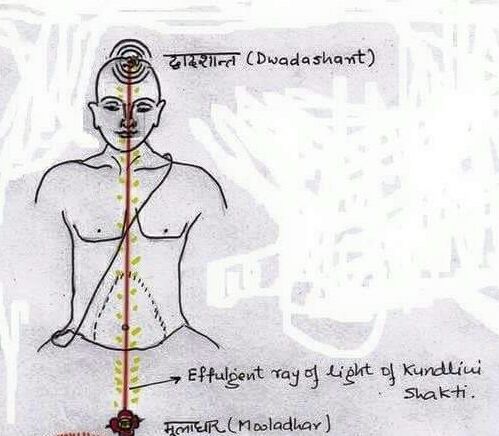 द्वादशान्त (Dwadashant)
Effulgent ray of light of Kundlini
Shakti.
मूलाधार (Mooladhar)